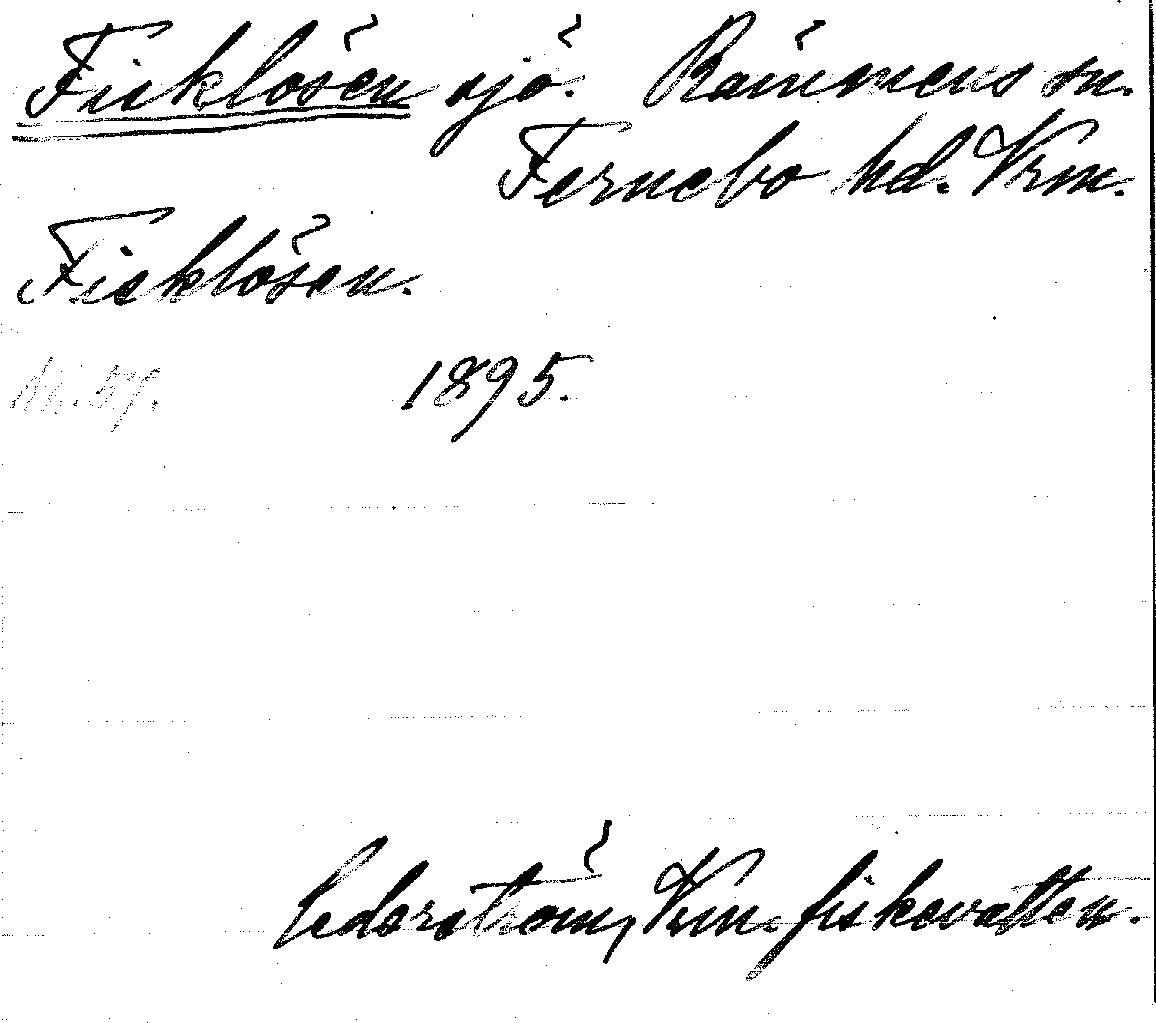 Ficklösen sjö. Rämmens sn.
Fernebo hd. Vrm.
Ficklösen.
1895.
Cederström, Vrm. fiskevatten.